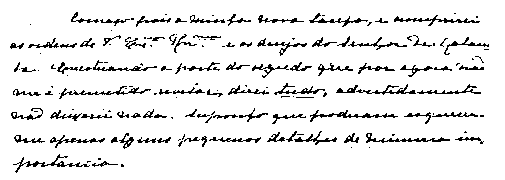 Começo pois a minha nova tarefa, e cumprirei
as ordens de V. Exª. Rmª. e os desejos do Senhor de Calam-
ba. Exceptuando a parte do segredo que por agora não
me é permetido revelar, direi tudo, advertidamente
não deixarei nada. Supponho que poderam esquecer-
me apenas alguns pequenos detalhes de minima im-
portancia.